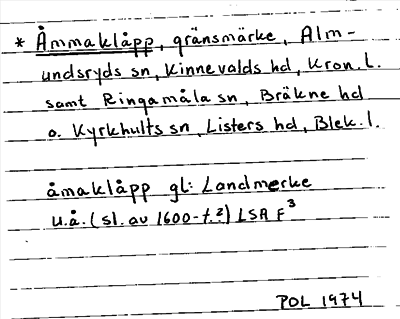 * Åmmaklåpp, gränsmärke, Alm-
undsryds sn, Kinnevalds hd, Kron. l.
samt Ringamåla sn, Bräkne hd
o. Kyrkhults sn, Listers hd, Blek. l.
åmaklåpp gl: Landmerke
u.å. (sl. av 1600-t.?) LSA F3
POL 1974